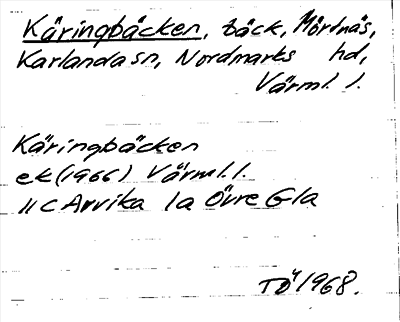 Käringbäcken, bäck, Mördnäs,
Karlanda sn, Nordmarks hd,
Värml. l.
Käringbäcken
ek (1966) Värml. l.
11 C Arvika 1a Övre Gla
TÖ 1968.